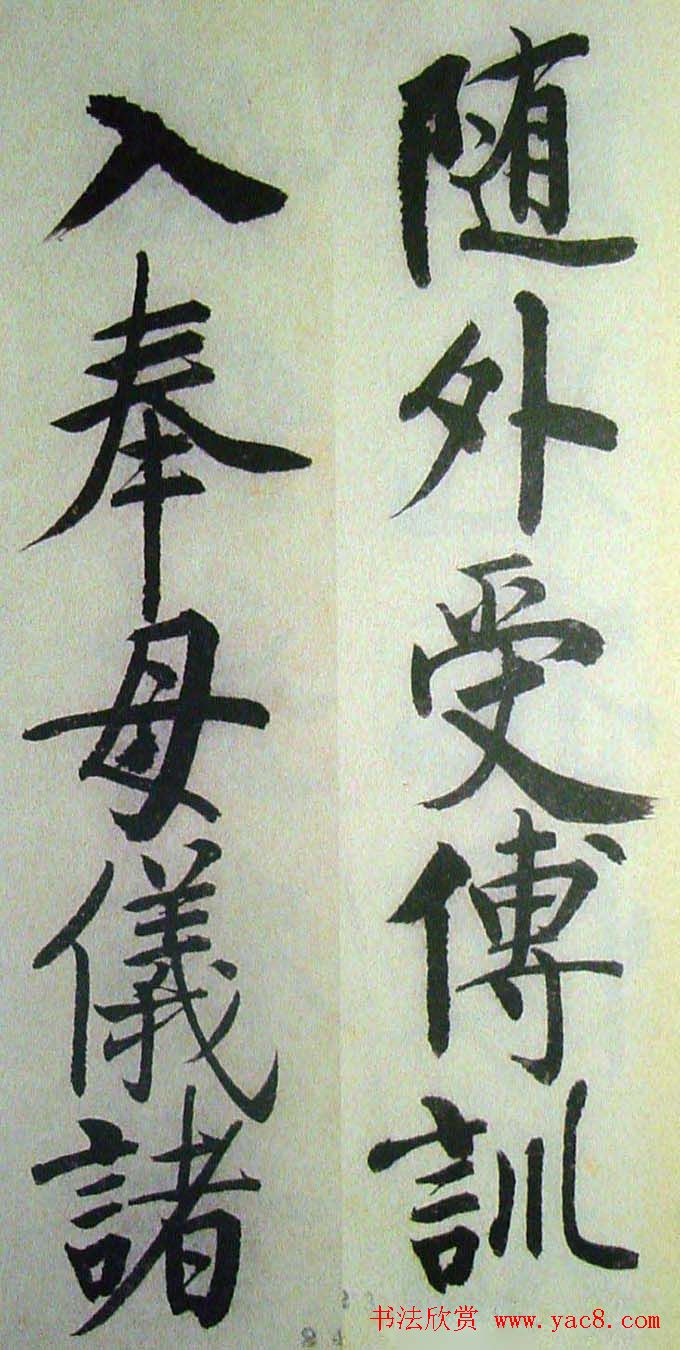 随外受傅訓
入奉母儀諸
书法欣赏 www.yac8.com